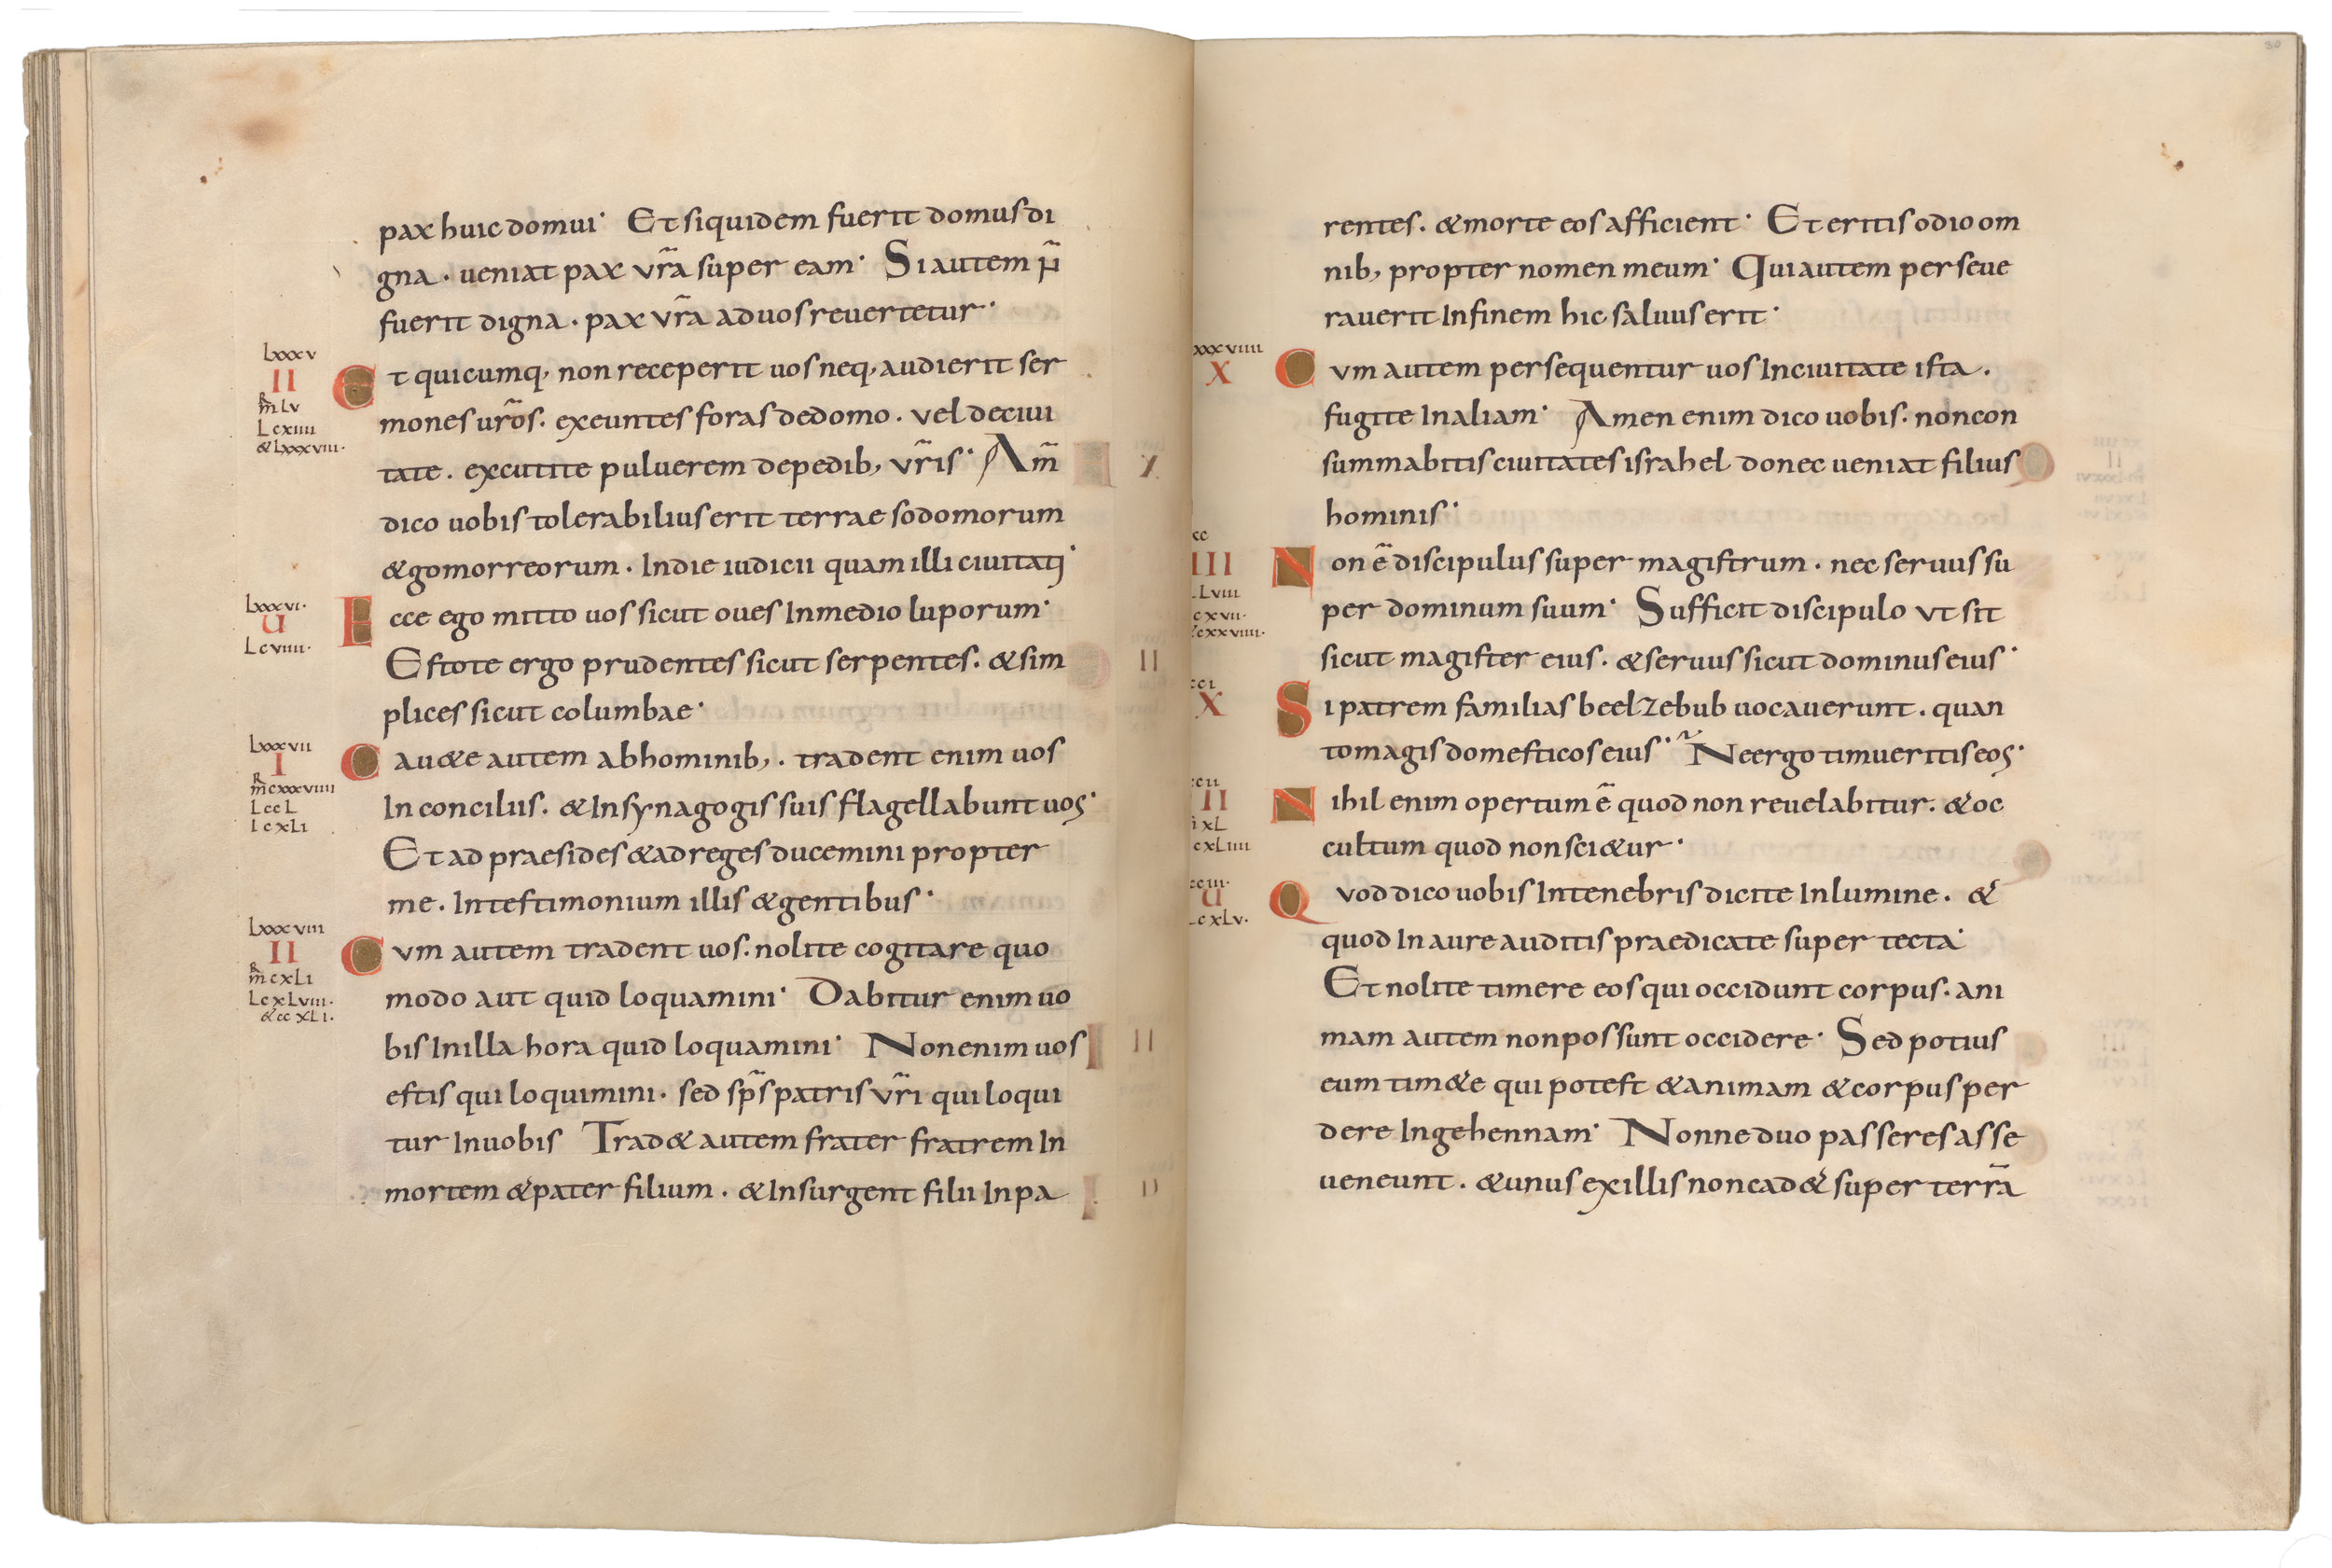 pax huic domui· Et siquidem fuerit domus di
gna· ueniat pax vr̃a super eam· Si autem n̄
fuerit digna· pax vr̃a ad uos reuertetur·
lxxxv
II
R
m lv
L cxiiii
& lxxxviii·
Et quicumq, non receperit uos neq, audierit ser
mones ur̃os· exeuntes foras de domo· vel de ciui
tate· excutite puluerem de pedib, vr̃is· Am̃
dico uobis tolerabilius erit terrae sodomorum
& gomorreorum· In die iudicii quam illi ciuitati·
lxxxvi·
U
L cviiii·
Ecce ego mitto uos sicut oues In medio luporum·
Estote ergo prudentes sicut serpentes· & sim
plices sicut columbae·
lxxxvii
I
R
m cxxxviiii
L ccL
I cxLi
Cau&e autem ab hominib,· tradent enim uos
In conciliis· & In synagogis suis flagellabunt uos·
Et ad praesides & ad reges ducemini propter
me· In testimonium illis & gentibus·
lxxxviii
II
R
m cxLi
L cxLviii·
& cc xLi·
Cvm autem tradent uos· nolite cogitare quo
modo aut quid loquamini· Dabitur enim uo
bis In illa hora quid loquamini· Non enim uos
estis qui loquimini· sed sp̃s patris vr̃i qui loqui
tur In uobis Trad& autem frater fratrem In
mortem & pater filium· & Insurgent filii In pa
30
rentes· & morte eos afficient· Et eritis odio om
nib, propter nomen meum· Qui autem perseue
rauerit In finem hic saluus erit·
xxxviiii
X
Cvm autem persequentur uos In ciuitate ista·
fugite In aliam· Amen enim dico uobis· non con
summabitis ciuitates israhel donec ueniat filius
hominis·
xc
III
Lviii
cxvii·
cxxviiii·
Non ẽ discipulus super magistrum· nec seruus su
per dominum suum· Sufficit discipulo vt sit
sicut magister eius· & seruus sicut dominus eius·
xci
X
Si patrem familias beelzebub uocauerunt· quan
to magis domesticos eius· Ne ergo timueritis eos·
xcii
II
xL
cxLiiii
Nihil enim opertum ẽ quod non reuelabitur· & oc
cultum quod non sci&ur·
xciii·
U
L cxLv·
Qvod dico uobis In tenebris dicite In lumine· &
quod In aure auditis praedicate super tecta·
Et nolite timere eos qui occidunt corpus· ani
mam autem non possunt occidere· Sed potius
eum tim&e qui potest & animam & corpus per
dere In gehennam· Nonne duo passeres asse
ueneunt· & unus ex illis non cad& super terrã